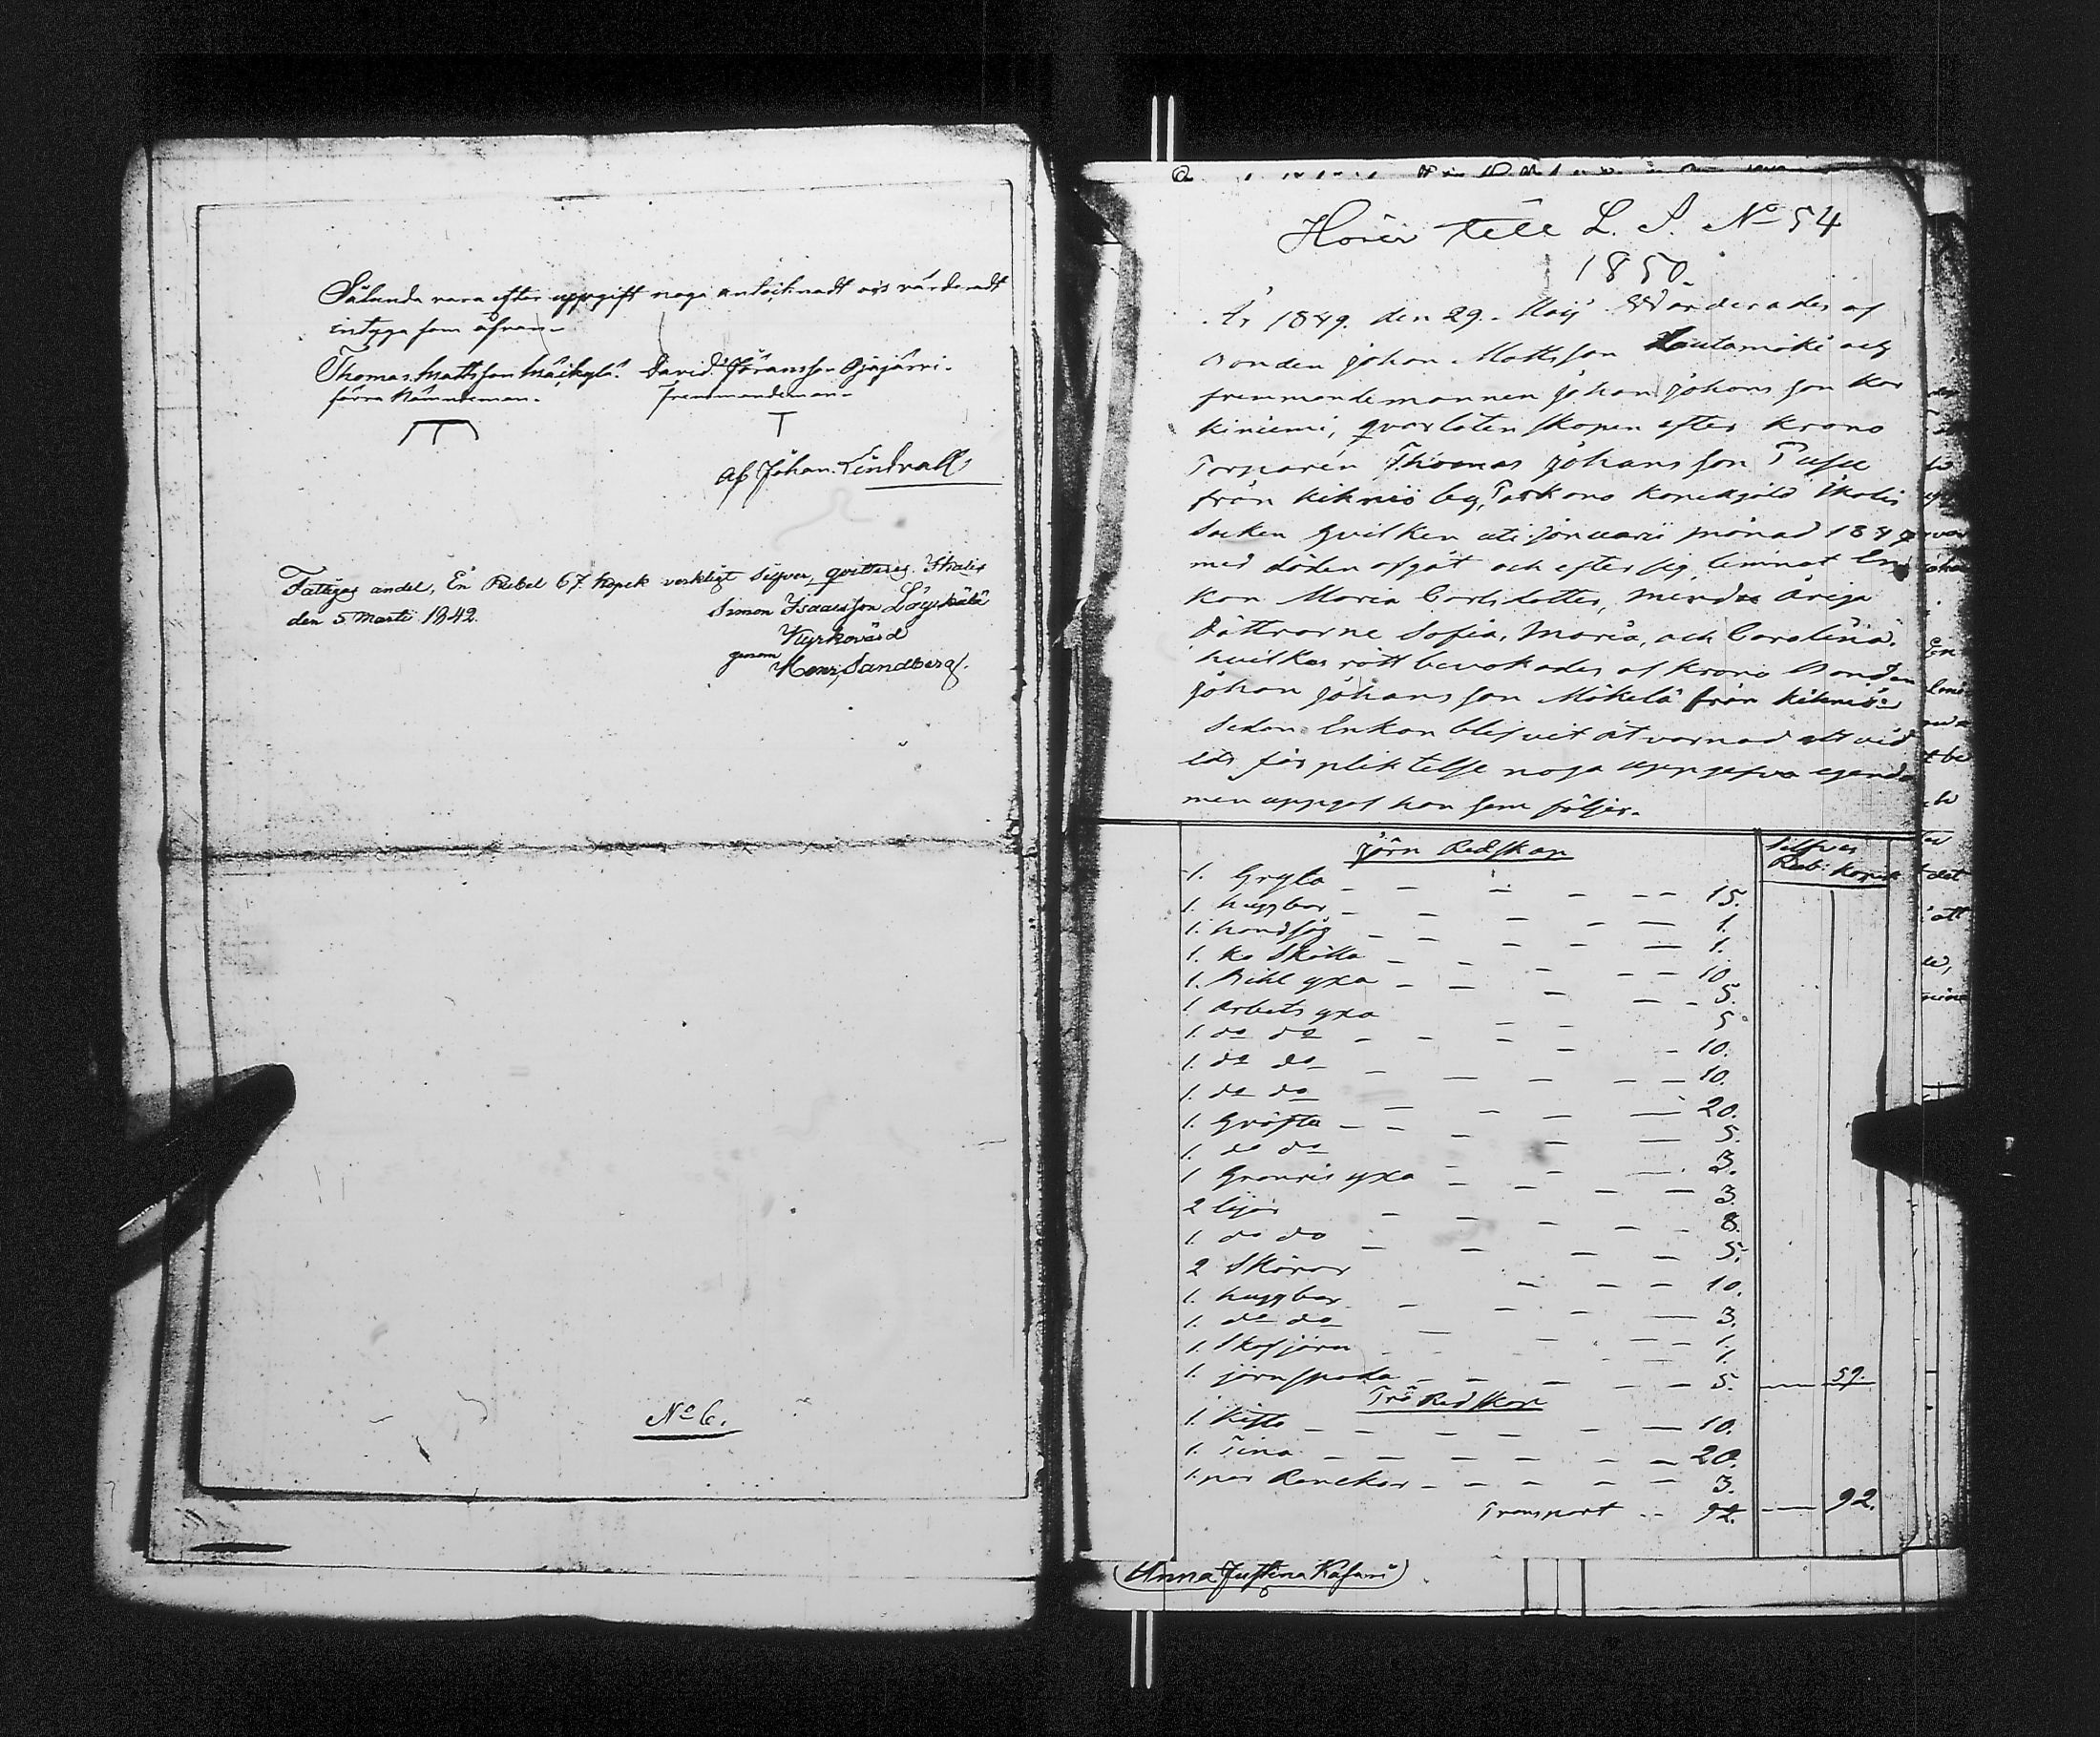 Sålunda vara efter uppgift noga antecknadt och värderadt
intyga som ofvan.
Thomas Mattsson Mäckylä. David Göransson Pyäjärvi.
förra Nämndeman. Fremmandeman.
af Johan Lindvall
Fattigas andel, En Rubel 67 kopek verkligt Silfver, qvitteras. Ikalis
den 5 Marti 1842. Simon Isaacsson
Kyrkovärd
genom
Henr. Sandberg.
No 6.
Hörer till L. S. No 54
1850.
År 1849. den 29. Maij Värderades af
Bonden Johan Mattsson Lautamäki och
fremmande mannen Johan Johansson Kar
kiniemi, qvarlåtenskapen efter Krono
Torparen Thomas Johansson
från Kihniö by, Parkano Kapellgäld Ikalis
Socken hvilken uti Januarii månad
med döden afgåt och efter sig lemnat En
kan Maria Carlsdotter, mindre åriga
döttrarne Sofia, Maria, och Carolina.
hvilkas rätt bevakades af Krono Bonden
Johan Johansson Mäkelä från Kihniö.
Sedan Enkan blifvit åtvarnad att vid
Eds förpliktelse noga uppgifva egendo
men uppgaf hon som följer.
Järn Redskap Silfver
Rub: Kopek
1. Gryta 15.
1. huggbar 1.
1. handsåg 1.
1. ko Skälla 10.
1. Bihl yxa 5.
1 arbets yxa 5.
1. do do 10.
1. do do 10.
1. do do 20.
1. Gräfta 5.
1. do do 3.
1 Granris yxa 3.
2 lijor 8.
1. do do 5.
2 Skäror 10.
1. huggbar 3.
1. do do 1.
1. Skafjärn 1.
1. järnspada 5. 59.
Trä Redskap
1. Kista 10.
1. Tina 20.
1. par Ranckor 3.
Transport 92. 92.
(Anna Justina Kasari)